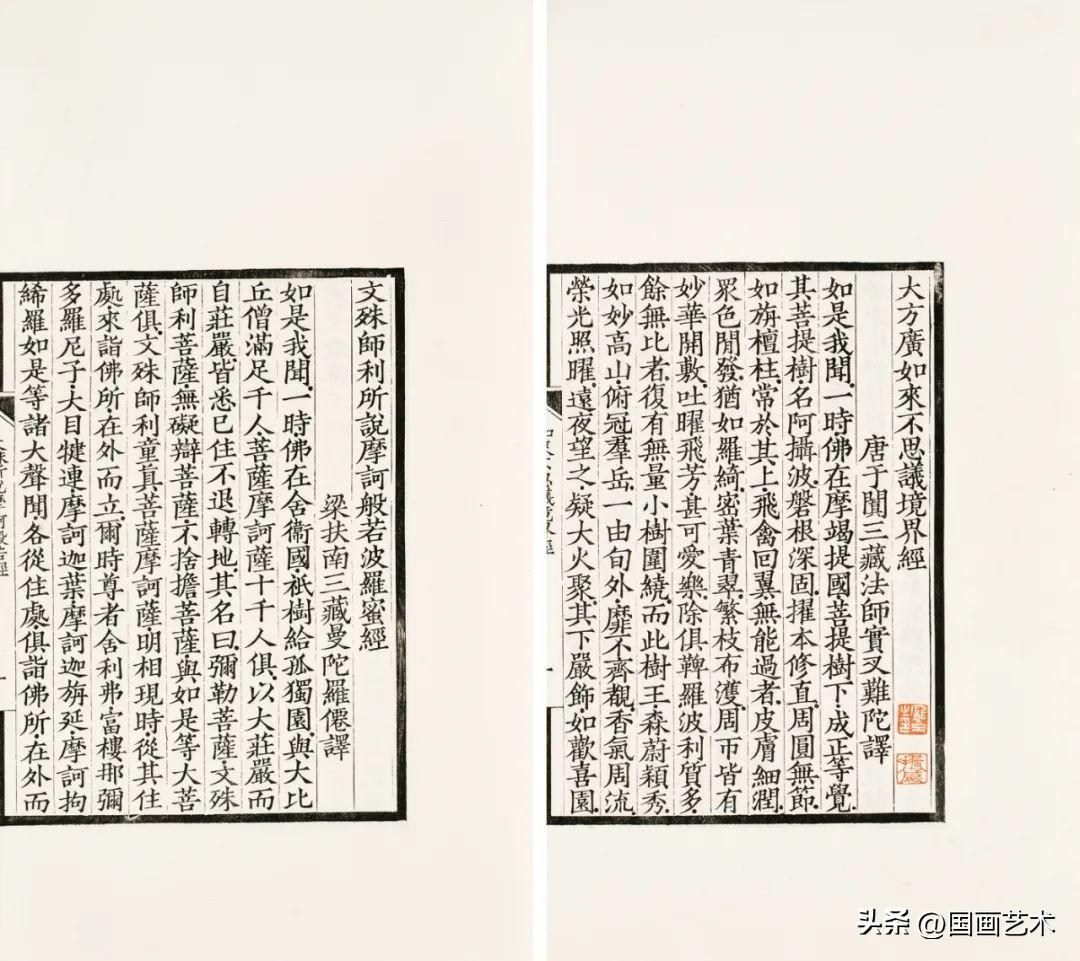 大方廣如來不思議境界經
唐于闐三藏法師實叉難陀譯
如是我聞。一時佛在摩竭提國。菩提樹下。成正等覺。
其菩提樹。名阿攝波。盤根深固。擢本修直。周圓無節。
如旃檀柱。常於其上。飛禽回翼。無能過者。皮膚細潤。
眾色閒發。猶如羅綺。密葉青翠。繁枝布濩。周帀皆有
妙華開敷。吐曜飛芳。甚可愛樂。除俱鞞羅。波利質多。
餘無比者。復有無量小樹圍繞。而此樹王。森蔚穎秀。
如妙高山。俯冠羣岳。一由旬外。靡不齊覩。香氣周流。
榮光照曜。遠夜望之。疑大火聚。其下嚴飾。如歡喜園。
文殊師利所說摩訶般若波羅蜜經
梁扶南三藏曼陀羅僊譯
如是我聞。一時。佛在舍衞國。祇樹給孤獨園。與大比
丘僧滿足千人。菩薩摩訶薩十千人俱。以大莊嚴而
自莊嚴。皆悉已住不退轉地。其名曰。彌勒菩薩。文殊
師利菩薩。無礙辯菩薩。不捨擔菩薩。與如是等大菩
薩俱。文殊師利童真菩薩摩訶薩。明相現時。從其住
處。來詣佛所。在外而立。爾時尊者舍利弗。富樓那彌
多羅尼子。大目犍連。摩訶迦葉。摩訶迦旃延。摩訶拘
絺羅。如是等諸大聲聞。各從住處。俱詣佛所。在外而
头条 @国画艺术